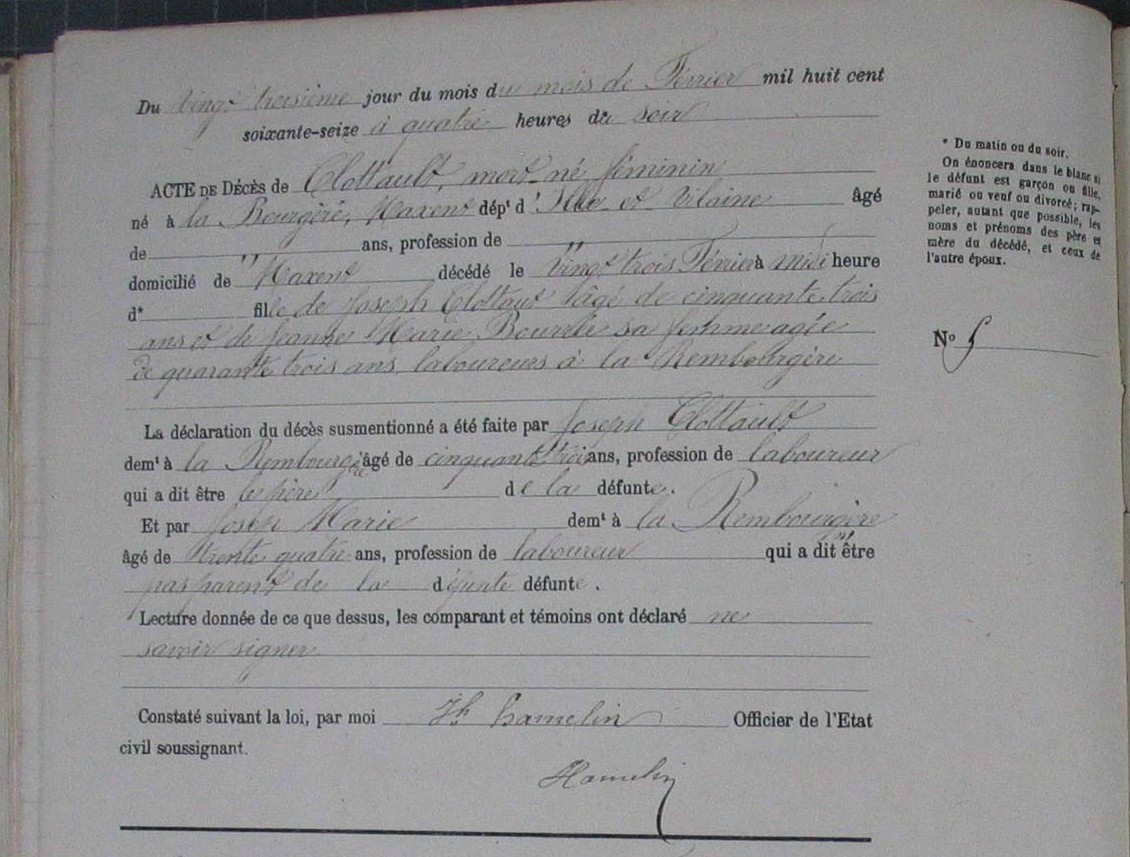 Du Vingt troisième jour du mois du mois de Février mil huit cent
soixante-seize à quatre heures du soir
ACTE DE DÉCÈS de Clottault, mort-né féminin
né à la Bourgère, Maxent dépt d'Ille et Vilaine âgé
de " ans, profession de "
domicilié de Maxent décédé le Vingt trois Février à midi heure
d* fille de Joseph Clottaut âgé de cinquante trois
ans et de Jeanne Marie Bourdée sa femme agée
de quarante trois ans laboureurs à la Rembourgère
La déclaration du décès susmentionné a été faite par Joseph Clottault
demt à la Rembourgère âgé de cinquante trois ans, profession de laboureur
qui a dit être le père de la défunte.
Et par Joseph Marie demt à la Rembourgère
âgé de trente quatre ans, profession de laboureur qui a dit n' être
pas parent de la défunte défunte.
Lecture donnée de ce que dessus, les comparant et témoins ont déclaré ne
savoir signer
Constaté suivant la loi, par moi Jh hamelin Officier de l'Etat
civil soussignant.
Hamelin
* Du matin ou du soir.
On énoncera dans le blanc si
le défunt est garçon ou fille,
marié ou veuf ou divorcé; rap-
peler, autant que possible, les
noms et prénoms des père et
mère du décédé, et ceux de
l'autre époux.
No 5